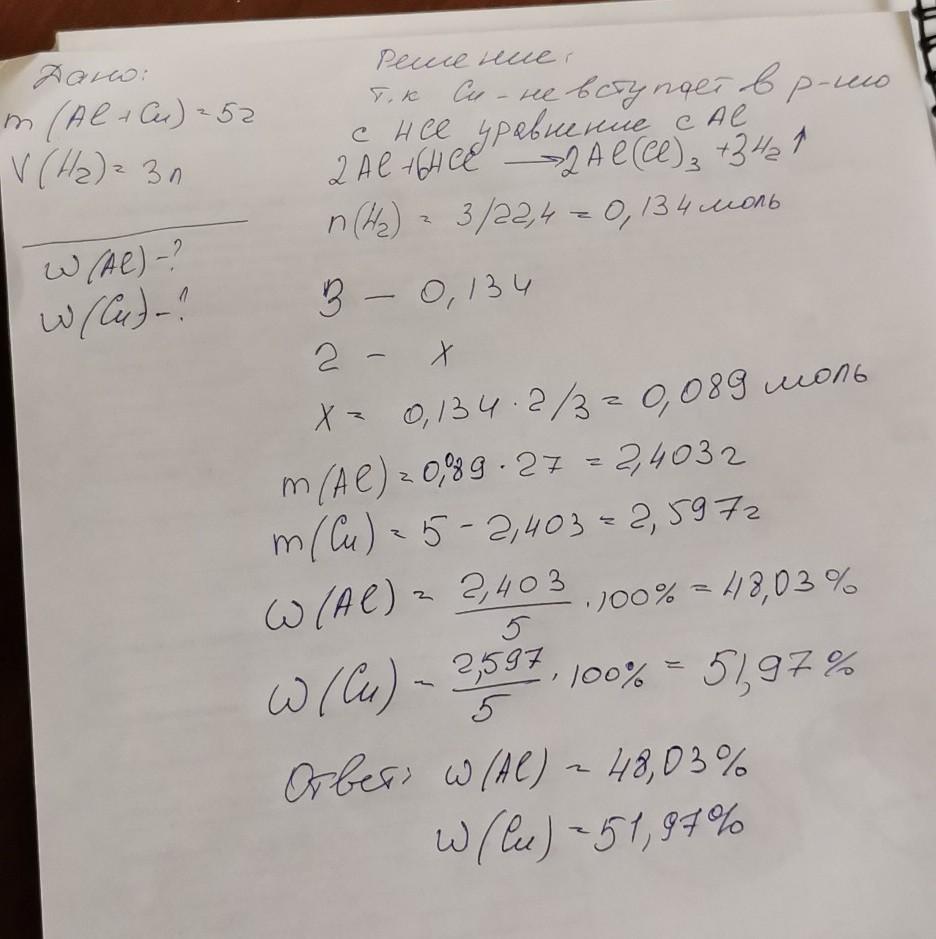 Дано:
m (Al + Cu) = 5г
V(H₂) = 3л
W(Al) - ?
W(Cu) - ?
Решение:
т.к Cu - не вступает в р-цию
с HCl уравнение с Al
2Al + 6HCl → 2Al(Cl)₃ + 3H₂↑
n(H₂) = 3/22,4 = 0,134 моль
3 — 0,134
2 - x
x = 0,134 · 2/3 = 0,089 моль
m(Al) = 0,089 · 27 = 2,403г
m(Cu) = 5 - 2,403 = 2,597г
W(Al) = 2,403/5 · 100% = 48,03%
W(Cu) = 2,597/5 · 100% = 51,97%
Ответ: W(Al) = 48,03%
W(Cu) = 51,97%